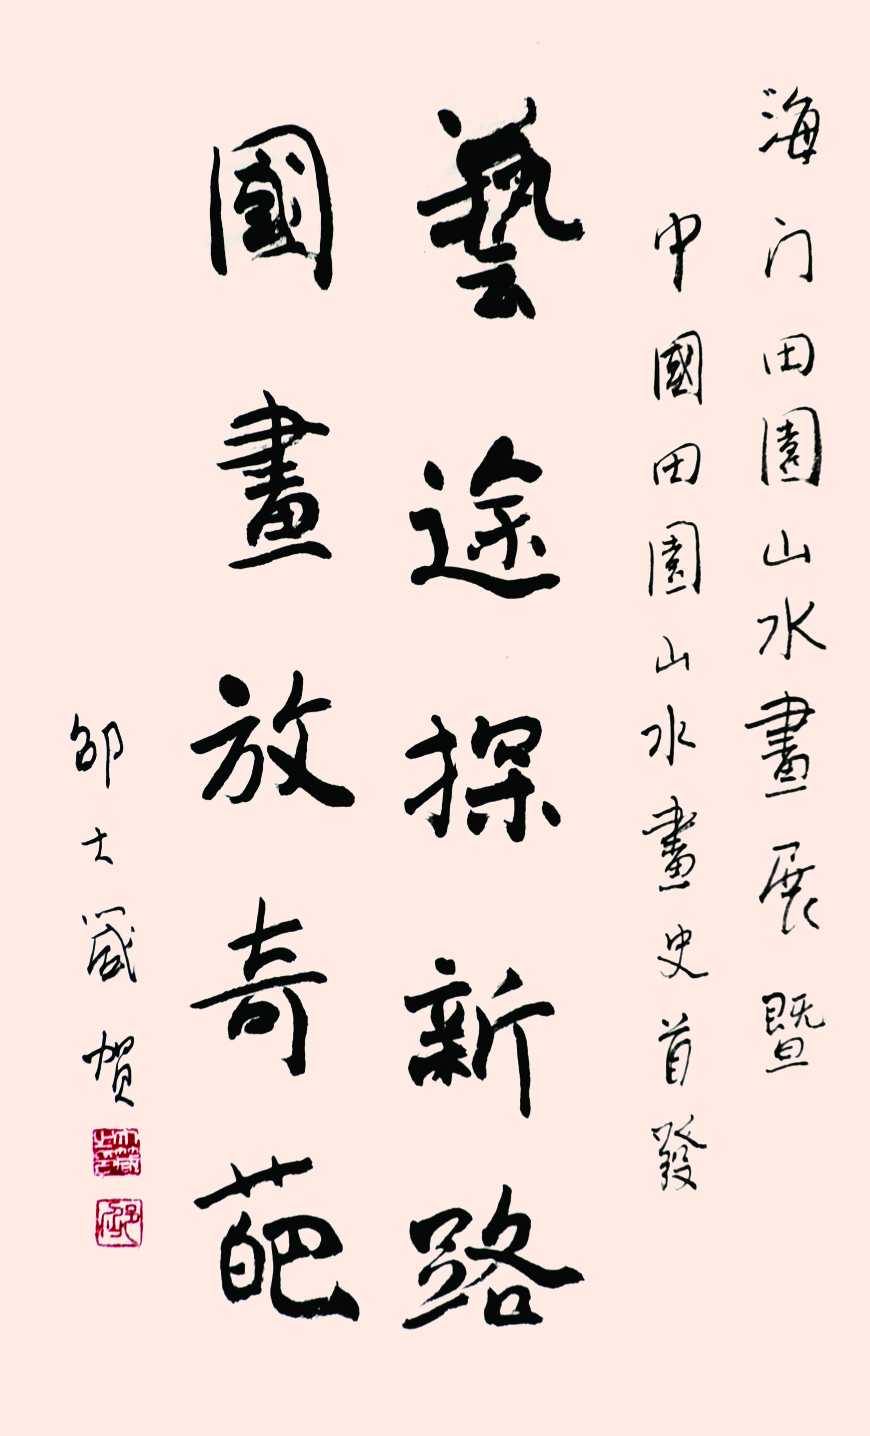 海门田園山水畫展暨
中國田園山水畫史首發
藝途探新路
國畫放奇葩
邵大箴賀